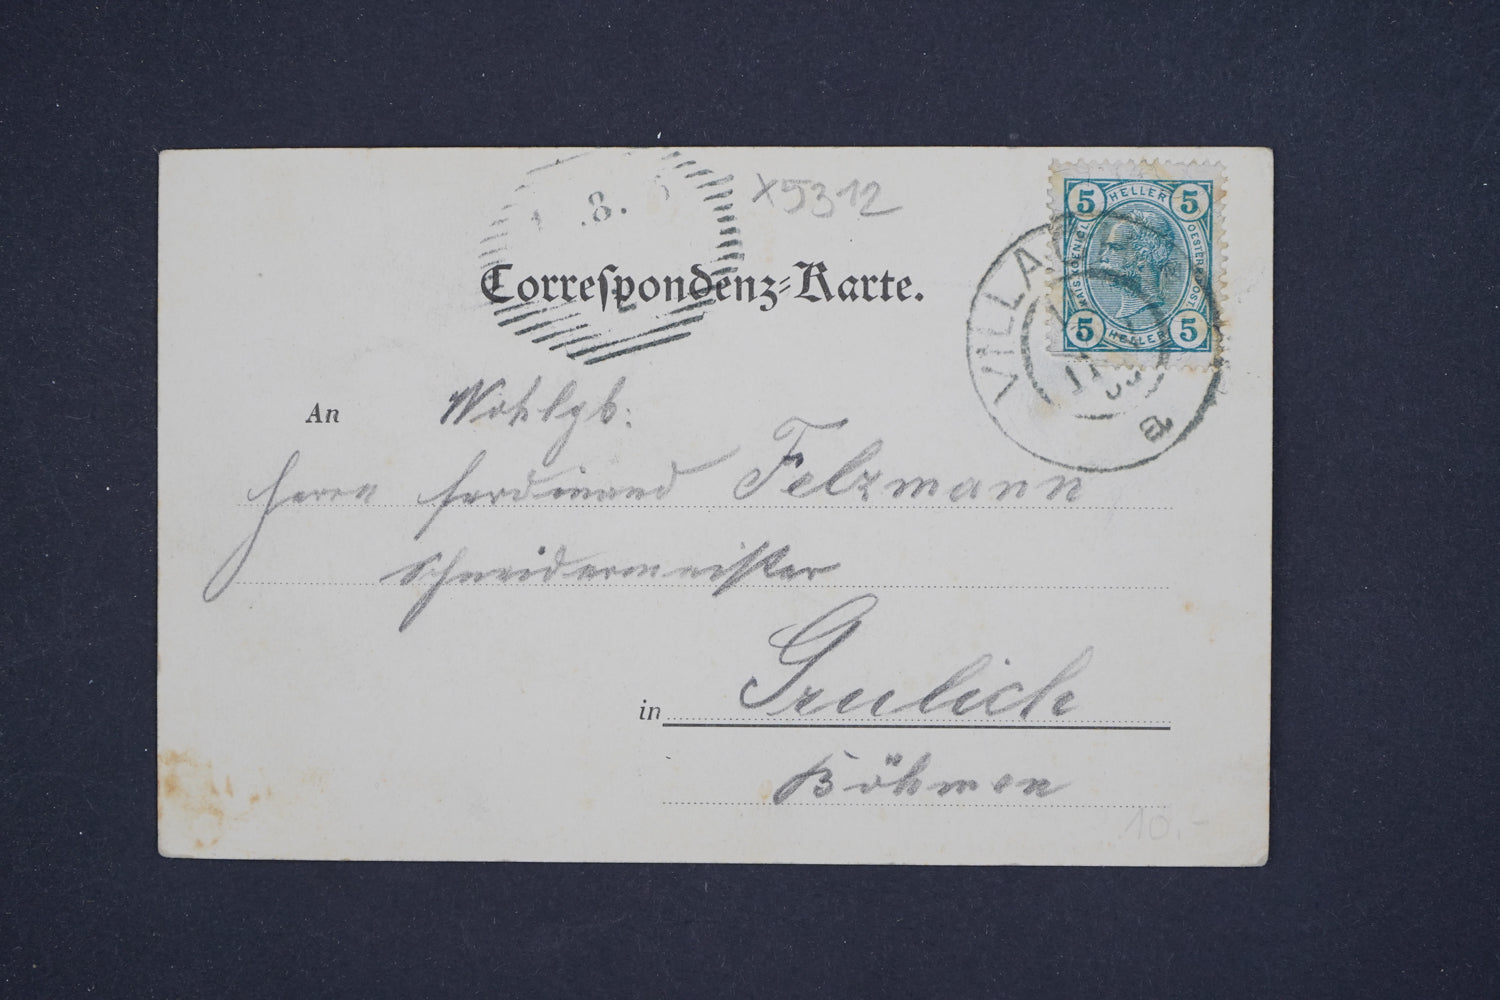 X5312
.8.
5 HELLER 5
KAIS. KOENIGL.
OESTERR. POST
5 HELLER 5
VILLA
B
Correspondenz-Karte.
An Wohlgb:
Herrn Ferdinand Felzmann
Schneidermeister
in Grulich
Böhmen
10.-